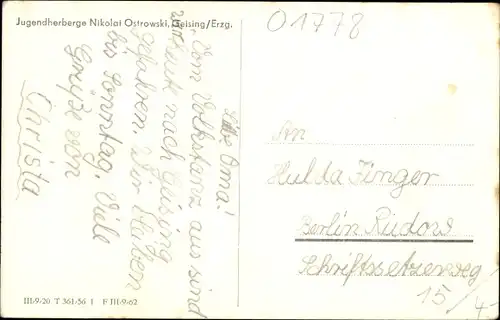 Jugendherberge Nikolai Ostrowski, Geising/Erzg.
01778
Liebe Oma!
Vom Volkstanz aus sind
wir heut nach Geising
gefahren. Wir bleiben
bis Sonntag. Viele
Grüße von
Christa
An
Hulda Finger
Berlin Rudow
Schriftsetzerweg
15
/4-
III-9-20 T 361-56 I F III-9-62